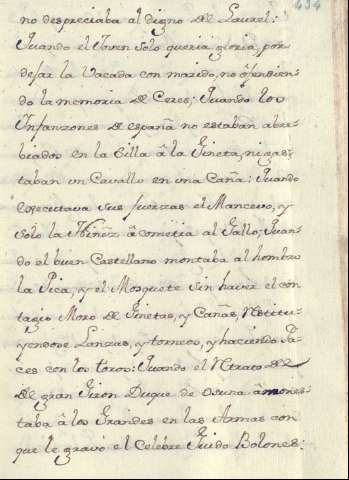 434
no despreciaba al digno de Laurel:
Quando el Joven solo queria gloria, por
dejar la Vacada con marido, no ôfendien-
do la memoria de Ceres; Quando los
Infanzones de españa no estaban abre-
biados en la Silla â la Gineta, ni gas-
taban un Cavallo en una Caña: Quando
executava sus fuerzas el Mancevo, y
solo la Niñez âcometia al Gallo; Quan-
do el buen Castellano montaba al hombro
la Pica, y el Mosquete sin haver el con
tagio Moro de Ginetas, y Cañas, Restitu-
yendose Lanzas, y torneos, y haciendo Pa-
ces con los toros: Quando el Retrato del
de gran Giron Duque de Osuna âmones-
taba â los Grandes en las Armas con
que le gravó el Celebre Guido Bolones: